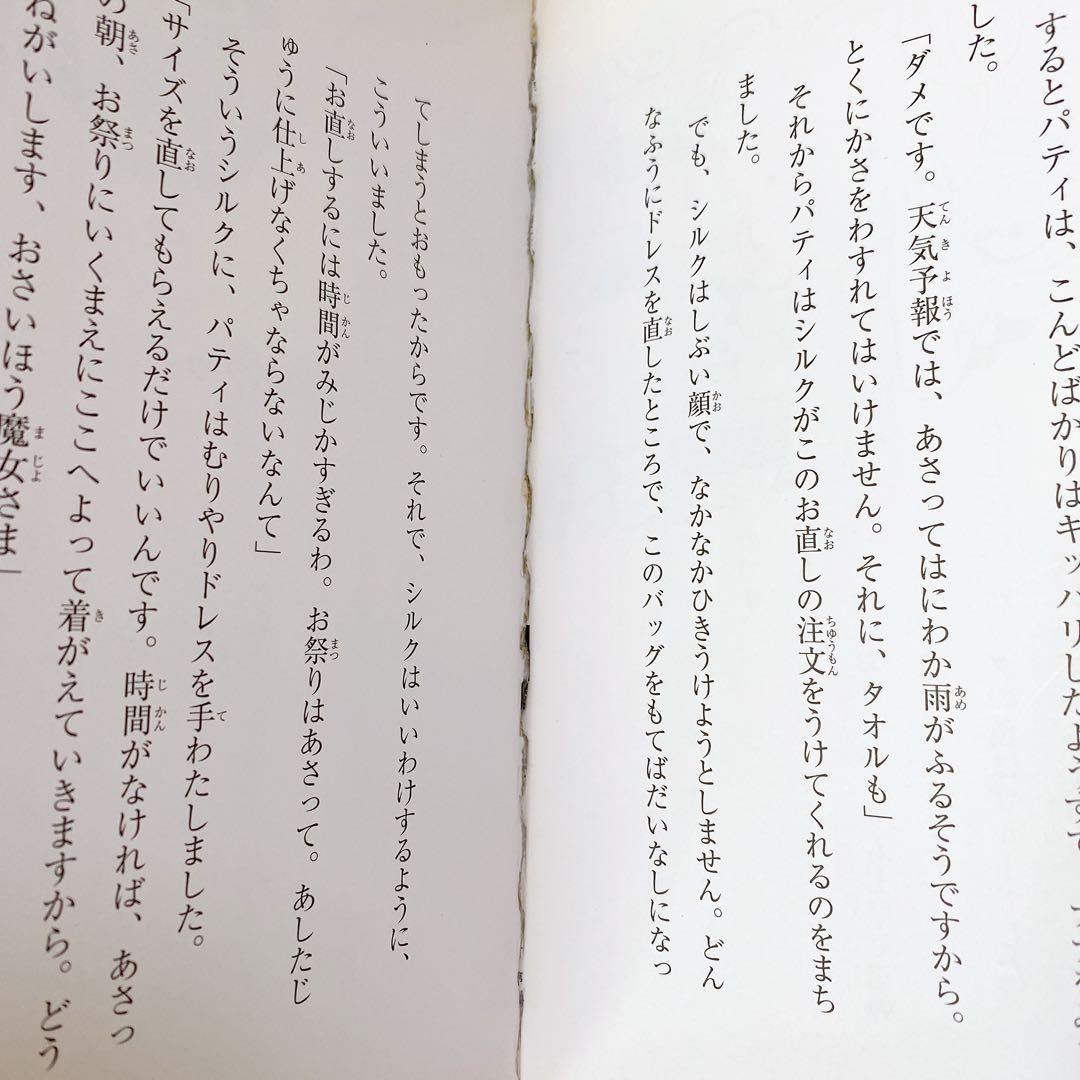 するとパティは、こんどばかりはキッパリしたようすで
した。
「ダメです。天気予報では、あさってはにわか雨がふるそうですから。
とくにかさをわすれてはいけません。それに、タオルも」
それからパティはシルクがこのお直しの注文をうけてくれるのをまち
ました。
でも、シルクはしぶい顔で、なかなかひきうけようとしません。どん
なふうにドレスを直したところで、このバッグをもてばだいなしになっ
てしまうとおもったからです。それで、シルクはいいわけするように、
こういいました。
「お直しするには時間がみじかすぎるわ。お祭りはあさって。あしたじ
ゅうに仕上げなくちゃならないなんて」
そういうシルクに、パティはむりやりドレスを手わたしました。
「サイズを直してもらえるだけでいいんです。時間がなければ、あさっ
の朝、お祭りにいくまえにここへよって着がえていきますから。どう
ねがいします、おさいほう魔女さま」